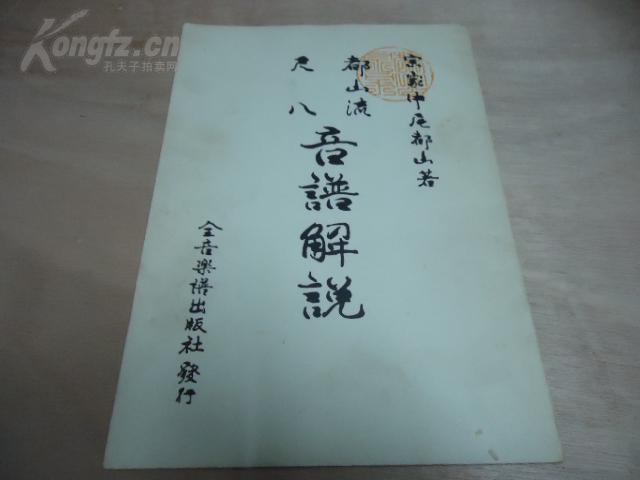 Kongfz.cn
孔夫子拍卖网
宗家中尾都山著
都山流
尺八
音譜解説
全音楽譜出版社發行